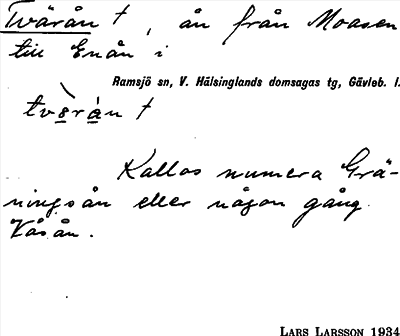 Tvärån †, ån från Moasen
till Enån i
Ramsjö sn, V. Hälsinglands domsagas tg, Gävleb. l.
tv̀ərán †
Kallas numera Grä-
ningsån eller någon gång
Våsån.
LARS LARSSON 1934